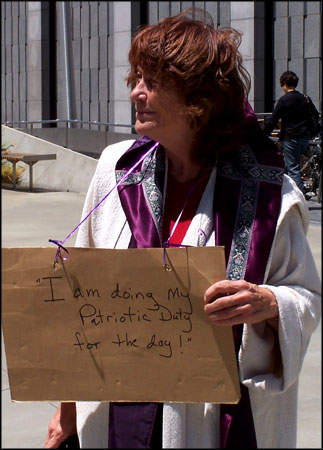 "I am doing My
Patriotic Duty
for the day!"